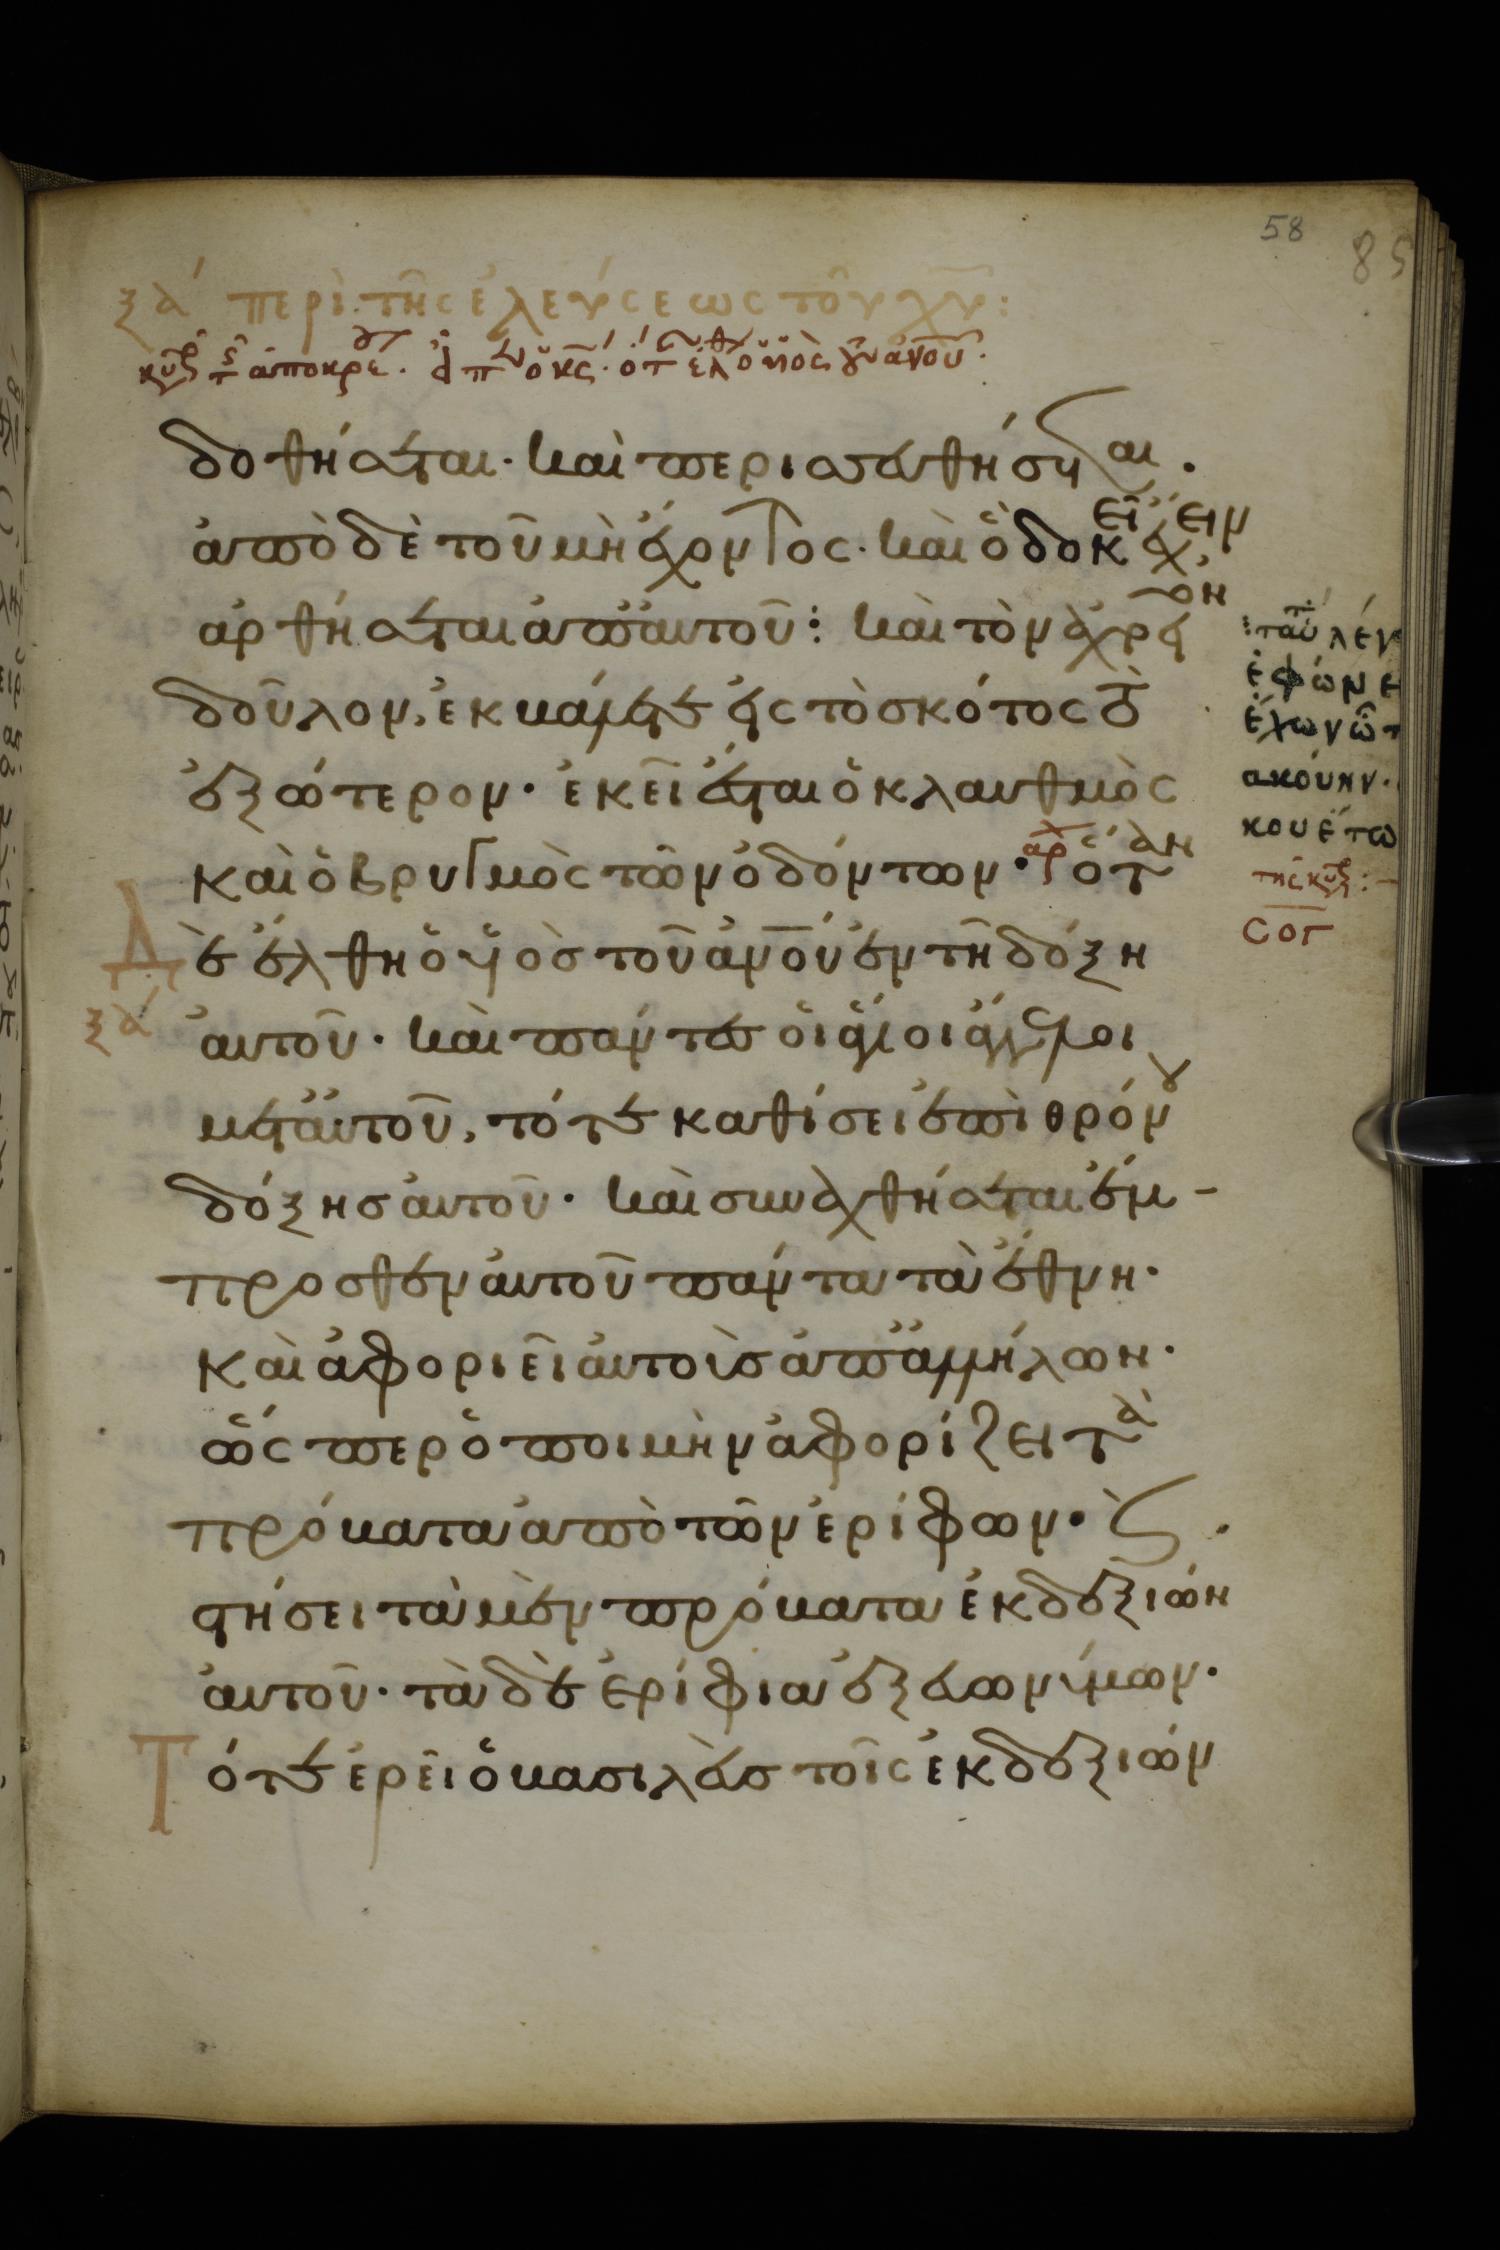 58
85
ξα΄ περὶ τῆς ἐλεύσεως τοῦ χυ:
δοθήσεται· καὶ περισσευθήσεται.
ἀπὸ δὲ τοῦ μὴ ἔχοντος· καὶ ὃ δοκεῖ ἔχειν
ἀρθήσεται ἀπ' αὐτοῦ: καὶ τὸν ἀχρεῖον
δοῦλον, ἐκβάλετε εἰς τὸ σκότος τὸ
ἐξώτερον· ἐκεῖ ἔσται ὁ κλαυθμὸς
καὶ ὁ βρυγμὸς τῶν ὀδόντων· ὅταν
δὲ ἔλθη ὁ υἱὸς τοῦ ἀνου ἐν τῆ δόξη
ξα΄
αὐτοῦ· καὶ πάντες οἱ ἅγιοι ἄγγελοι
μετ' αὐτοῦ, τότε καθίσει ἐπὶ θρόνου
δόξης αὐτοῦ· καὶ συναχθήσεται ἔμ-
προσθεν αὐτοῦ πάντα τὰ ἔθνη·
καὶ ἀφοριεῖ αὐτοὺς ἀπ' ἀλλήλων·
ὥσπερ ὁ ποιμὴν ἀφορίζει τὰ
πρόβατα ἀπὸ τῶν ἐρίφων· ϗ
στήσει τὰ μὲν πρόβατα ἐκ δεξιῶν
αὐτοῦ· τὰ δὲ ἐρίφια ἐξ εὐωνύμων·
Τότε ἐρεῖ ὁ βασιλεὺς τοῖς ἐκ δεξιῶν
ἐφώνε
ἔχων ὦτ
ἀκούειν·
κουέτω
σογ